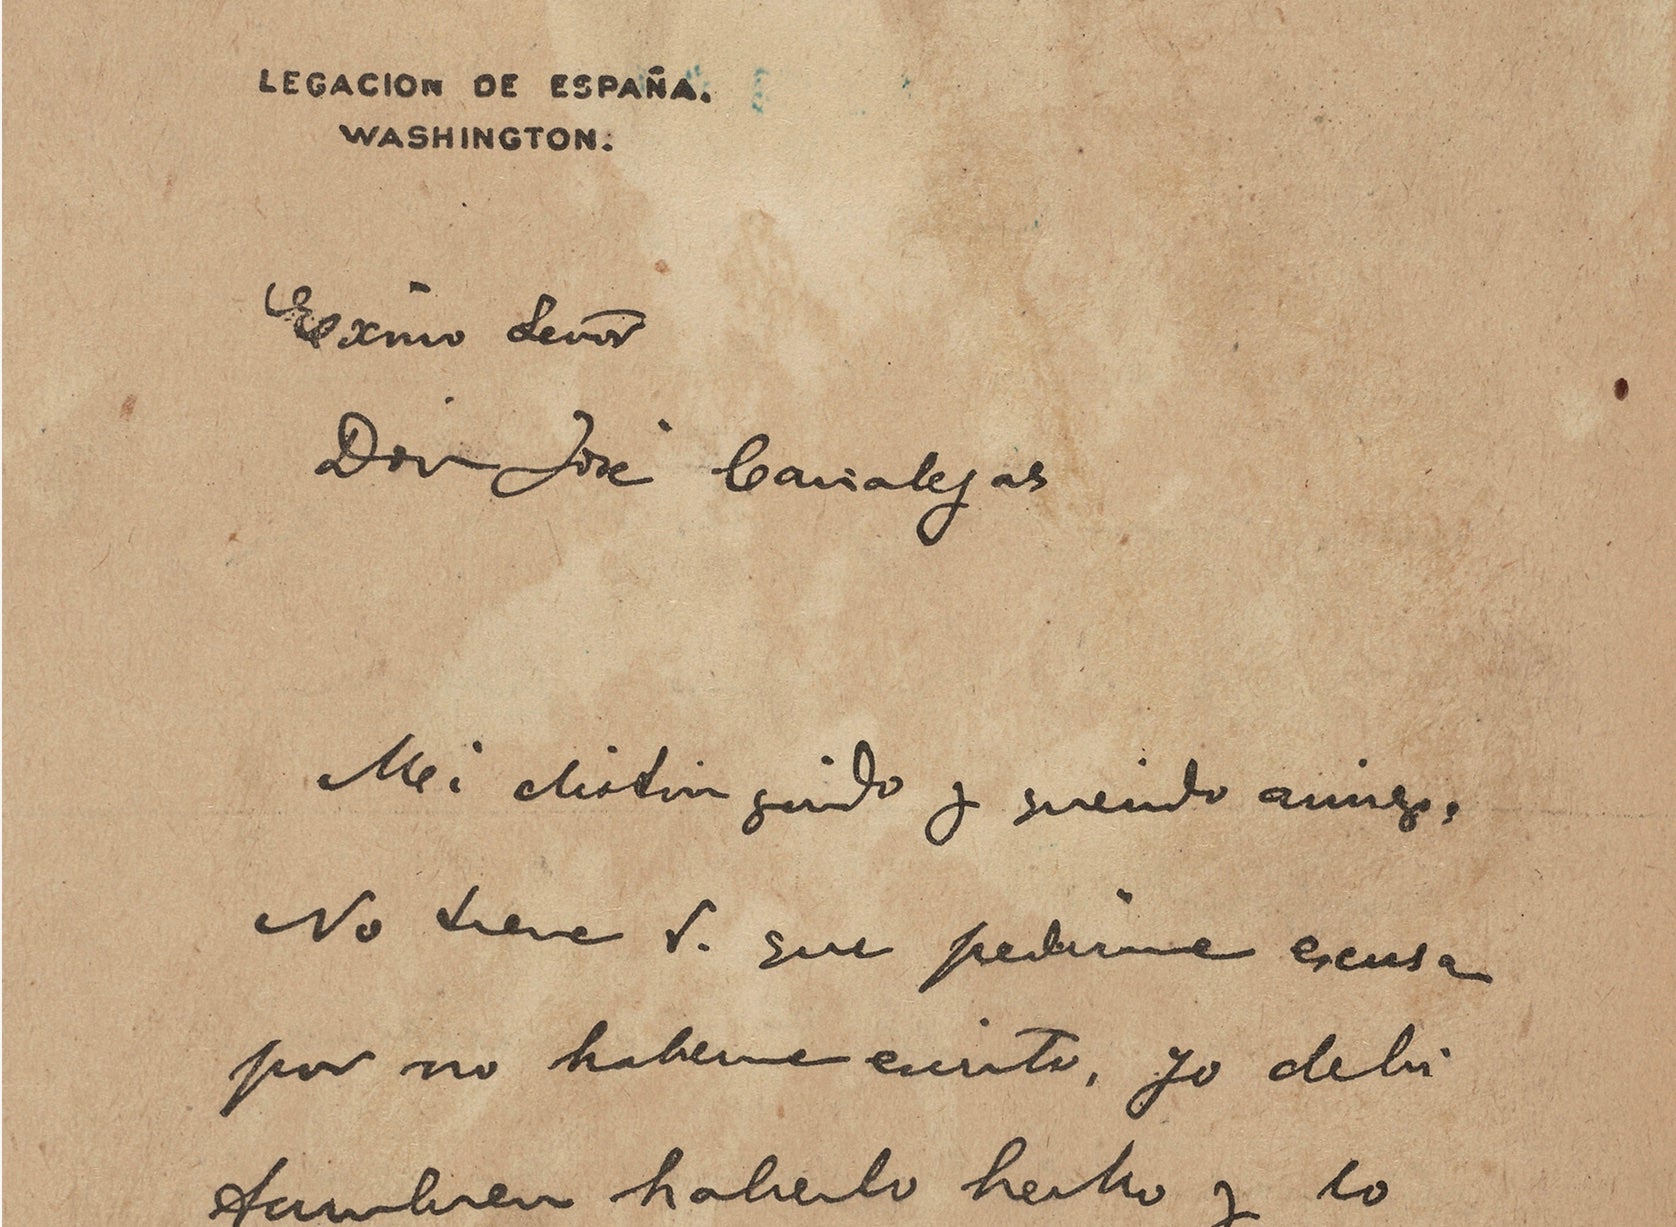 LEGACION DE ESPAÑA.
WASHINGTON.
Exmo Señor
Don José Canalejas
Mi distinguido y querido amigo,
No tiene V. que pedirme excusa
por no haberme escrito, yo debi
tambien haberlo hecho y lo